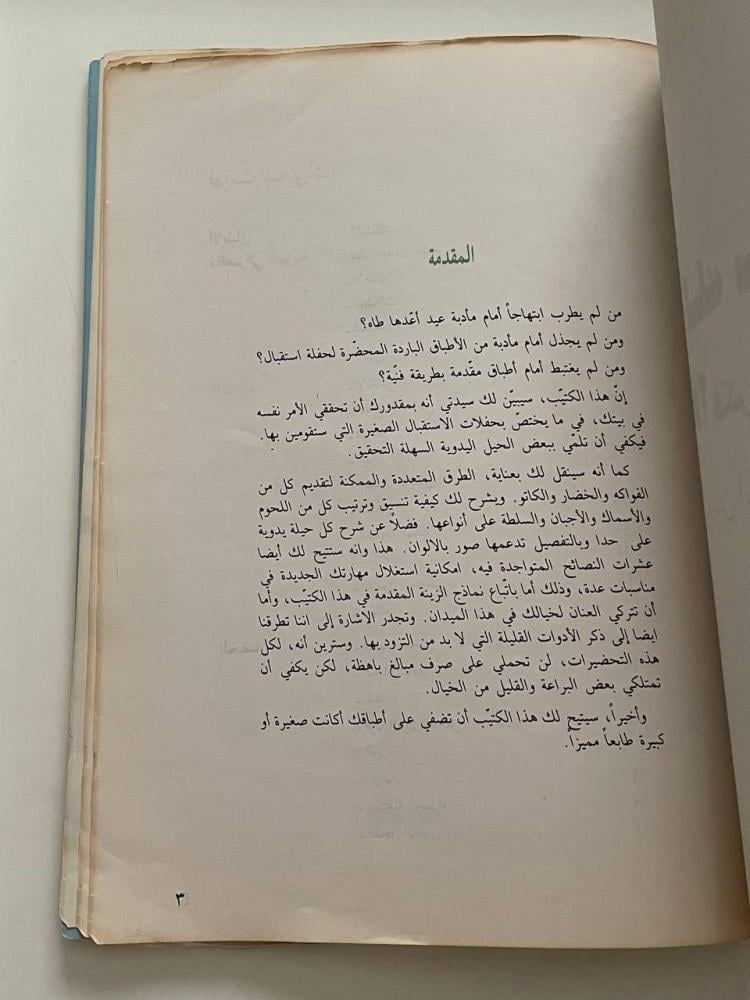 المقدمة
من لم يطرب ابتهاجاً أمام مأدبة عيد أعّدها طاه؟
ومن لم يجذل أمام مأدبة من الأطباق الباردة المحضّرة لحفلة استقبال؟
ومن لم يغتبط أمام أطباق مقّدمة بطريقة فنيّة؟
إنّ هذا الكتيّب، سيبيّن لك سيدتي أنه بمقدورك أن تحققي الأمر نفسه
في بيتك، في ما يختصّ بحفلات الاستقبال الصغيرة التي ستقومين بها.
فيكفي أن تلمّي ببعض الحيل اليدوية السهلة التحقيق.
كما أنه سينقل لك بعناية، الطرق المتعددة والممكنة لتقديم كل من
الفواكه والخضار والكاتو. ويشرح لك كيفية تنسيق وترتيب كل من اللحوم
والأسماك والأجبان والسلطة على أنواعها. فضلاً عن شرح كل حيلة يدوية
على حدا وبالتفصيل تدعمها صور بالالوان. هذا وانه ستتيح لك أيضا
عشرات النصائح المتواجدة فيه، امكانية استغلال مهارتك الجديدة في
مناسبات عدة، وذلك أما باتّباع نماذج الزينة المقدمة في هذا الكتيّب، وأما
أن تتركي العنان لخيالك في هذا الميدان. وتجدر الاشارة إلى اننا تطرقنا
ايضا إلى ذكر الأدوات القليلة التي لا بد من التزود بها. وسترين أنه، لكل
هذه التحضيرات، لن تحملي على صرف مبالغ باهظة، لكن يكفي أن
تمتلكي بعض البراعة والقليل من الخيال.
وأخيراً، سيتيح لك هذا الكتيّب أن تضفي على أطباقك أكانت صغيرة أو
كبيرة طابعاً مميزاً.
٣